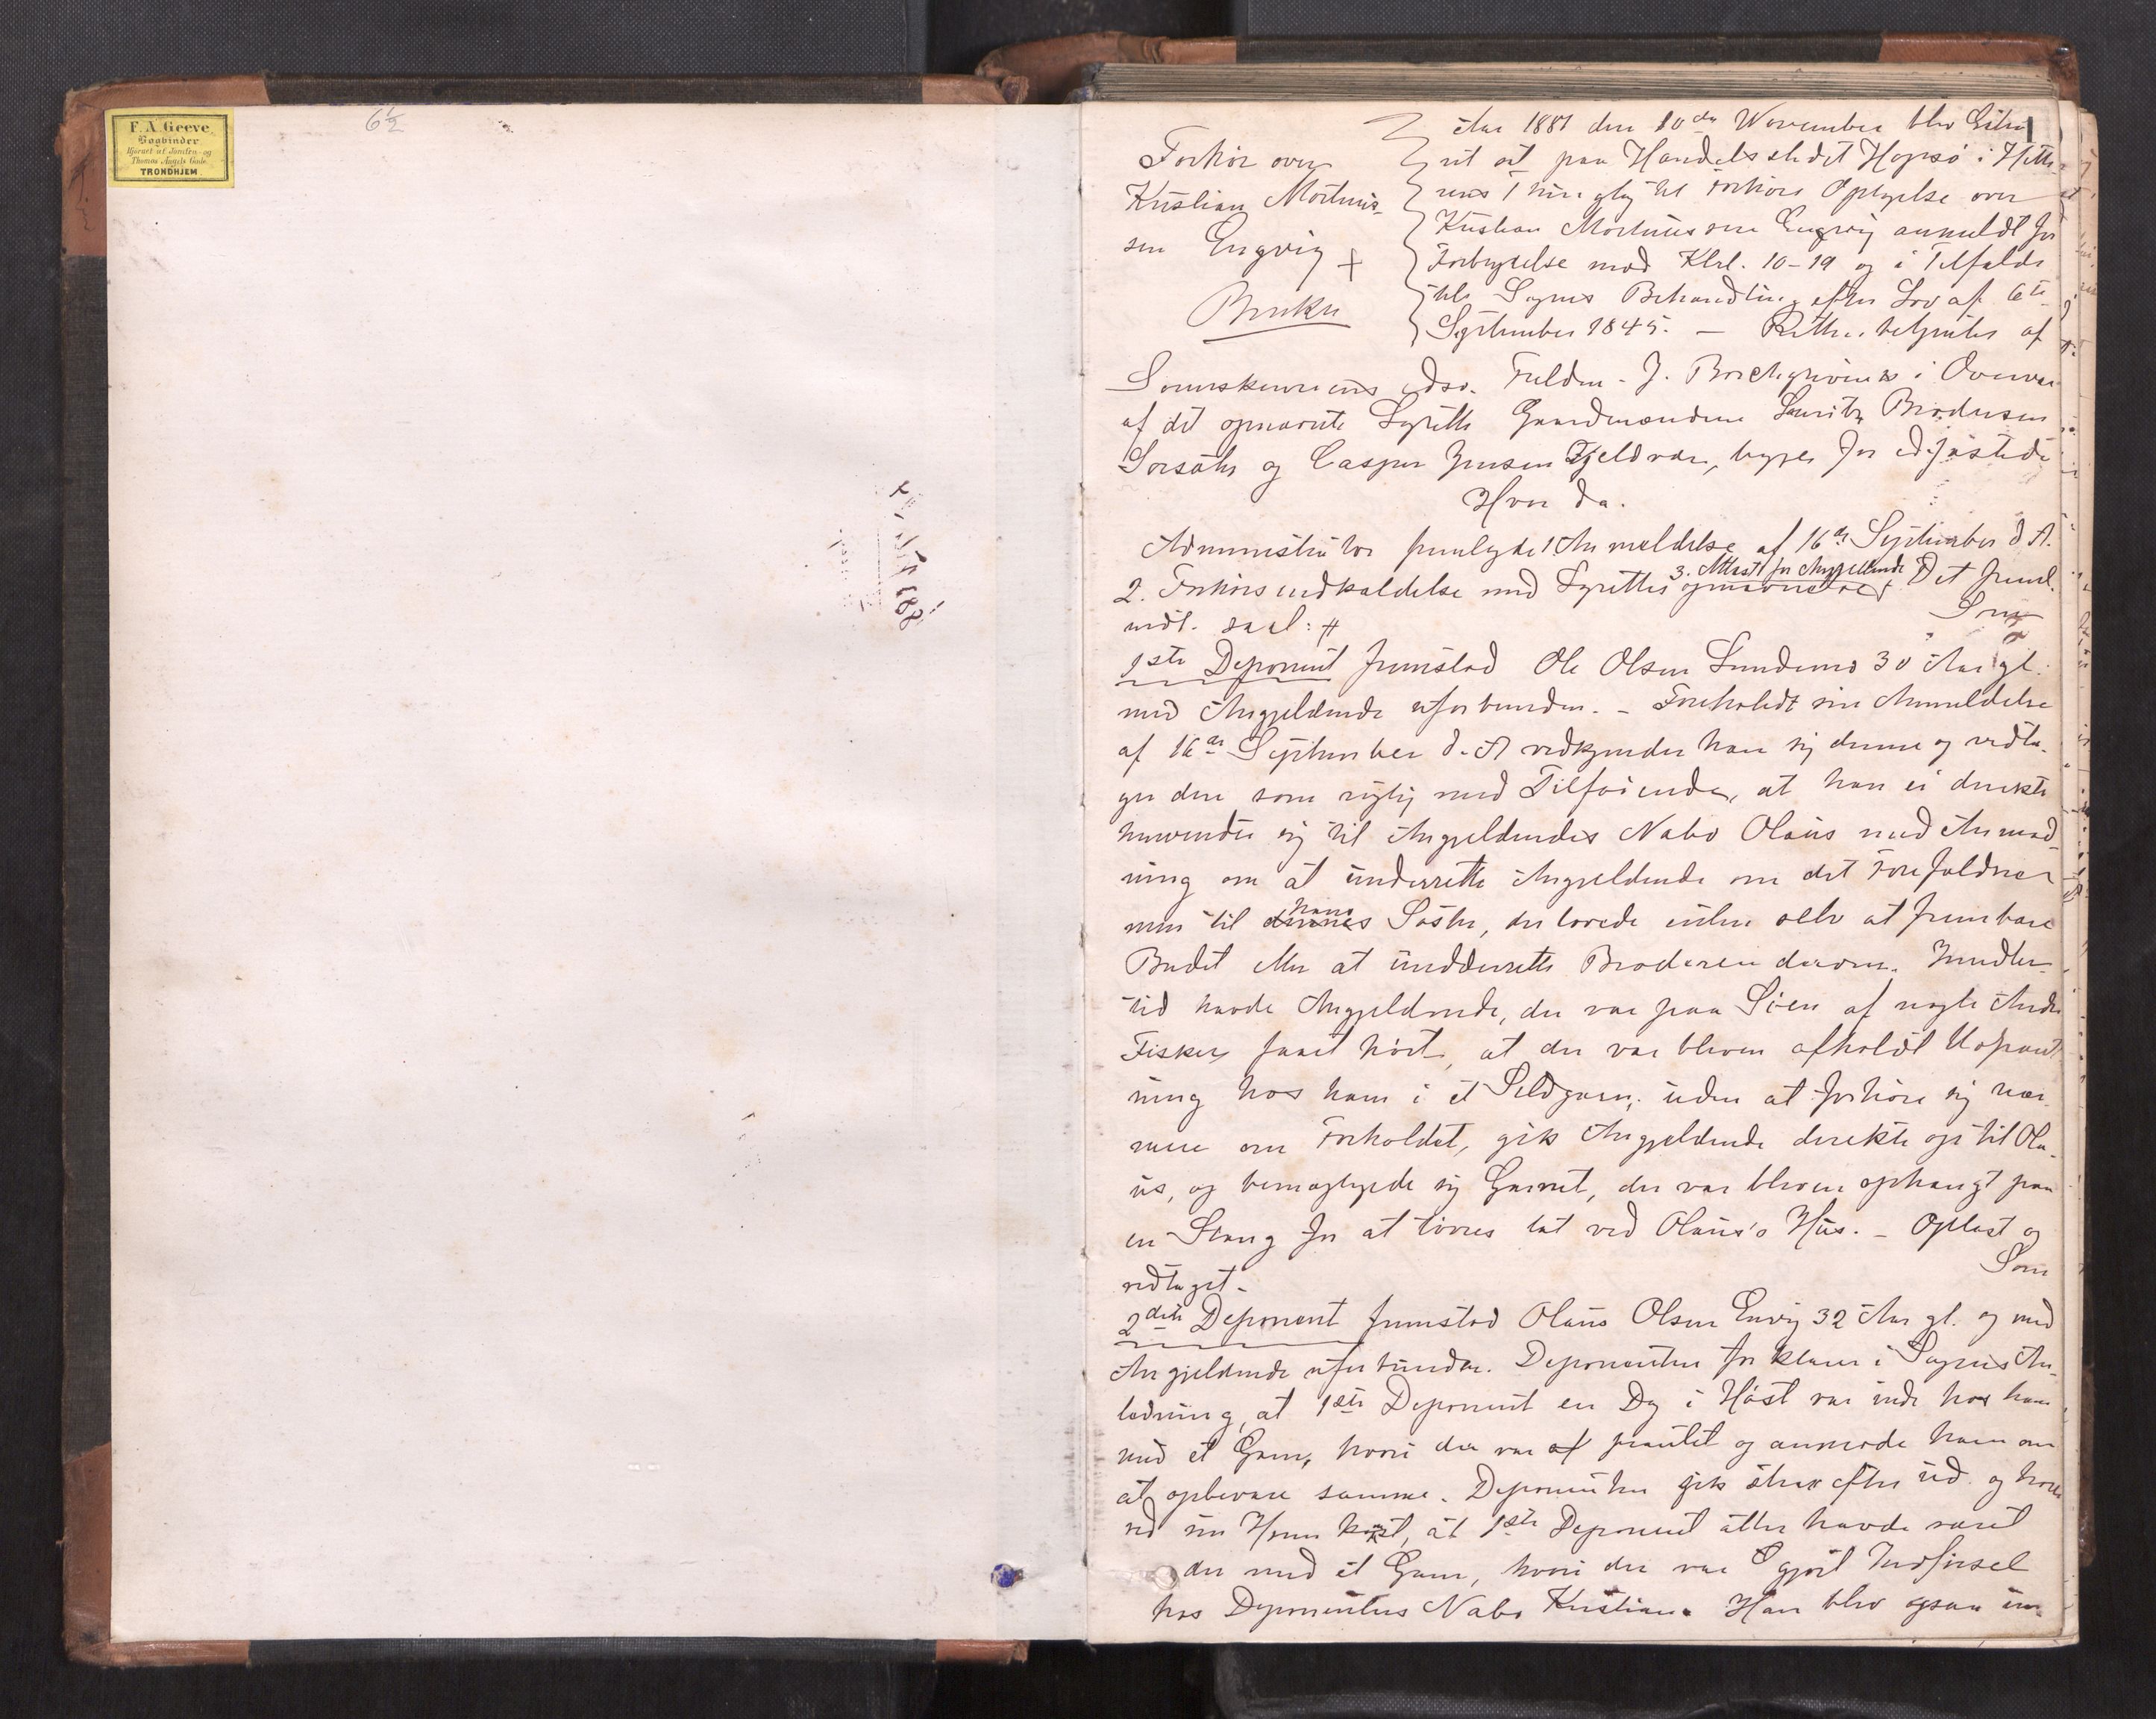 F. A. Greve
Bogbinder
Hjørnet af Jomfru- og
Thomas Angels Gade
TRONDHJEM
6½
Forhør over
Kristian Mortinus-
sen Engvig +
Bruker
Aar 1881 den 10de November blev Extra
ret sat paa Handelsstedet Hopsø i Hitte-
rens Thinglag til Forhørs Optagelse over
Kristian Mortinussen Engvig anmeldt for
Forbrydelse mod Krl. 10-19 og i Tilfælde
til Sagens Behandling efter Lov af 6te
September 1845. — Retten betjentes af
Sorenskriverens edsv. Fuldm. J. Borchgrevink i Overvær
af det opnævnte Lagrette Gaardmændene Lauritz Brodersen
Sørsæter og Casper Jensen Fjeldvær, begge før edfæstede
Hvor da.
Administrator fremlagde 1 Anmeldelse af 16de September d. A.
2. Forhørsindkaldelse med Lagrettes opnævnelse 3. Attest for Angjældende Det freml.
indt. saal: #
Som
1ste Deponent fremstod Ole Olsen Sundemo 30 Aar gl.
med Angjeldende uforbunden. - Foreholdt sin Anmeldelse
af 16de September d. A vedkjender han sig denne og vedta-
ger den som rigtig med Tilføiende, at han ei direkte
henvendte sig til Angjeldendes Nabo Olaus med Anmod-
ning om at underrette Angjeldende om det Forefaldne
men til dennes hans Søster, der lovede enten selv at frembære
Budet eller at undderrette Broderen derom. Imidler-
tid havde Angjeldende, der var paa Søen af nogle Andre
Fiskere faaet hørt, at der var bleven afholdt Udpant-
ning hos ham i et Sildgarn; uden at forhøre sig nær-
mere om Forholdet, gik Angjeldende direkte op til Ola-
us, og bemægtigede sig Garnet, der var bleven ophængt paa
en Stang for at tørres tæt ved Olaus's Hus. - Oplæst og
vedtaget.
Som
2den Deponent fremstod Olaus Olsen Envig 32 Aar gl. og med
Angjeldende uforbunden. Deponenten forklarer i Sagens An-
ledning, at 1ste Deponent en Dag i Høst var inde hos ham
med et Garn, hvori der var af pantet og anmode ham om
at opbevare samme. Deponenten gik strax efter ud og hørte
ved sin Hjemkomst, at 1ste Deponent atter havde været
der med et Garn, hvori der var gjort Indførsel
hos Deponentens Nabo Kristian. Han blev ogsaa un-